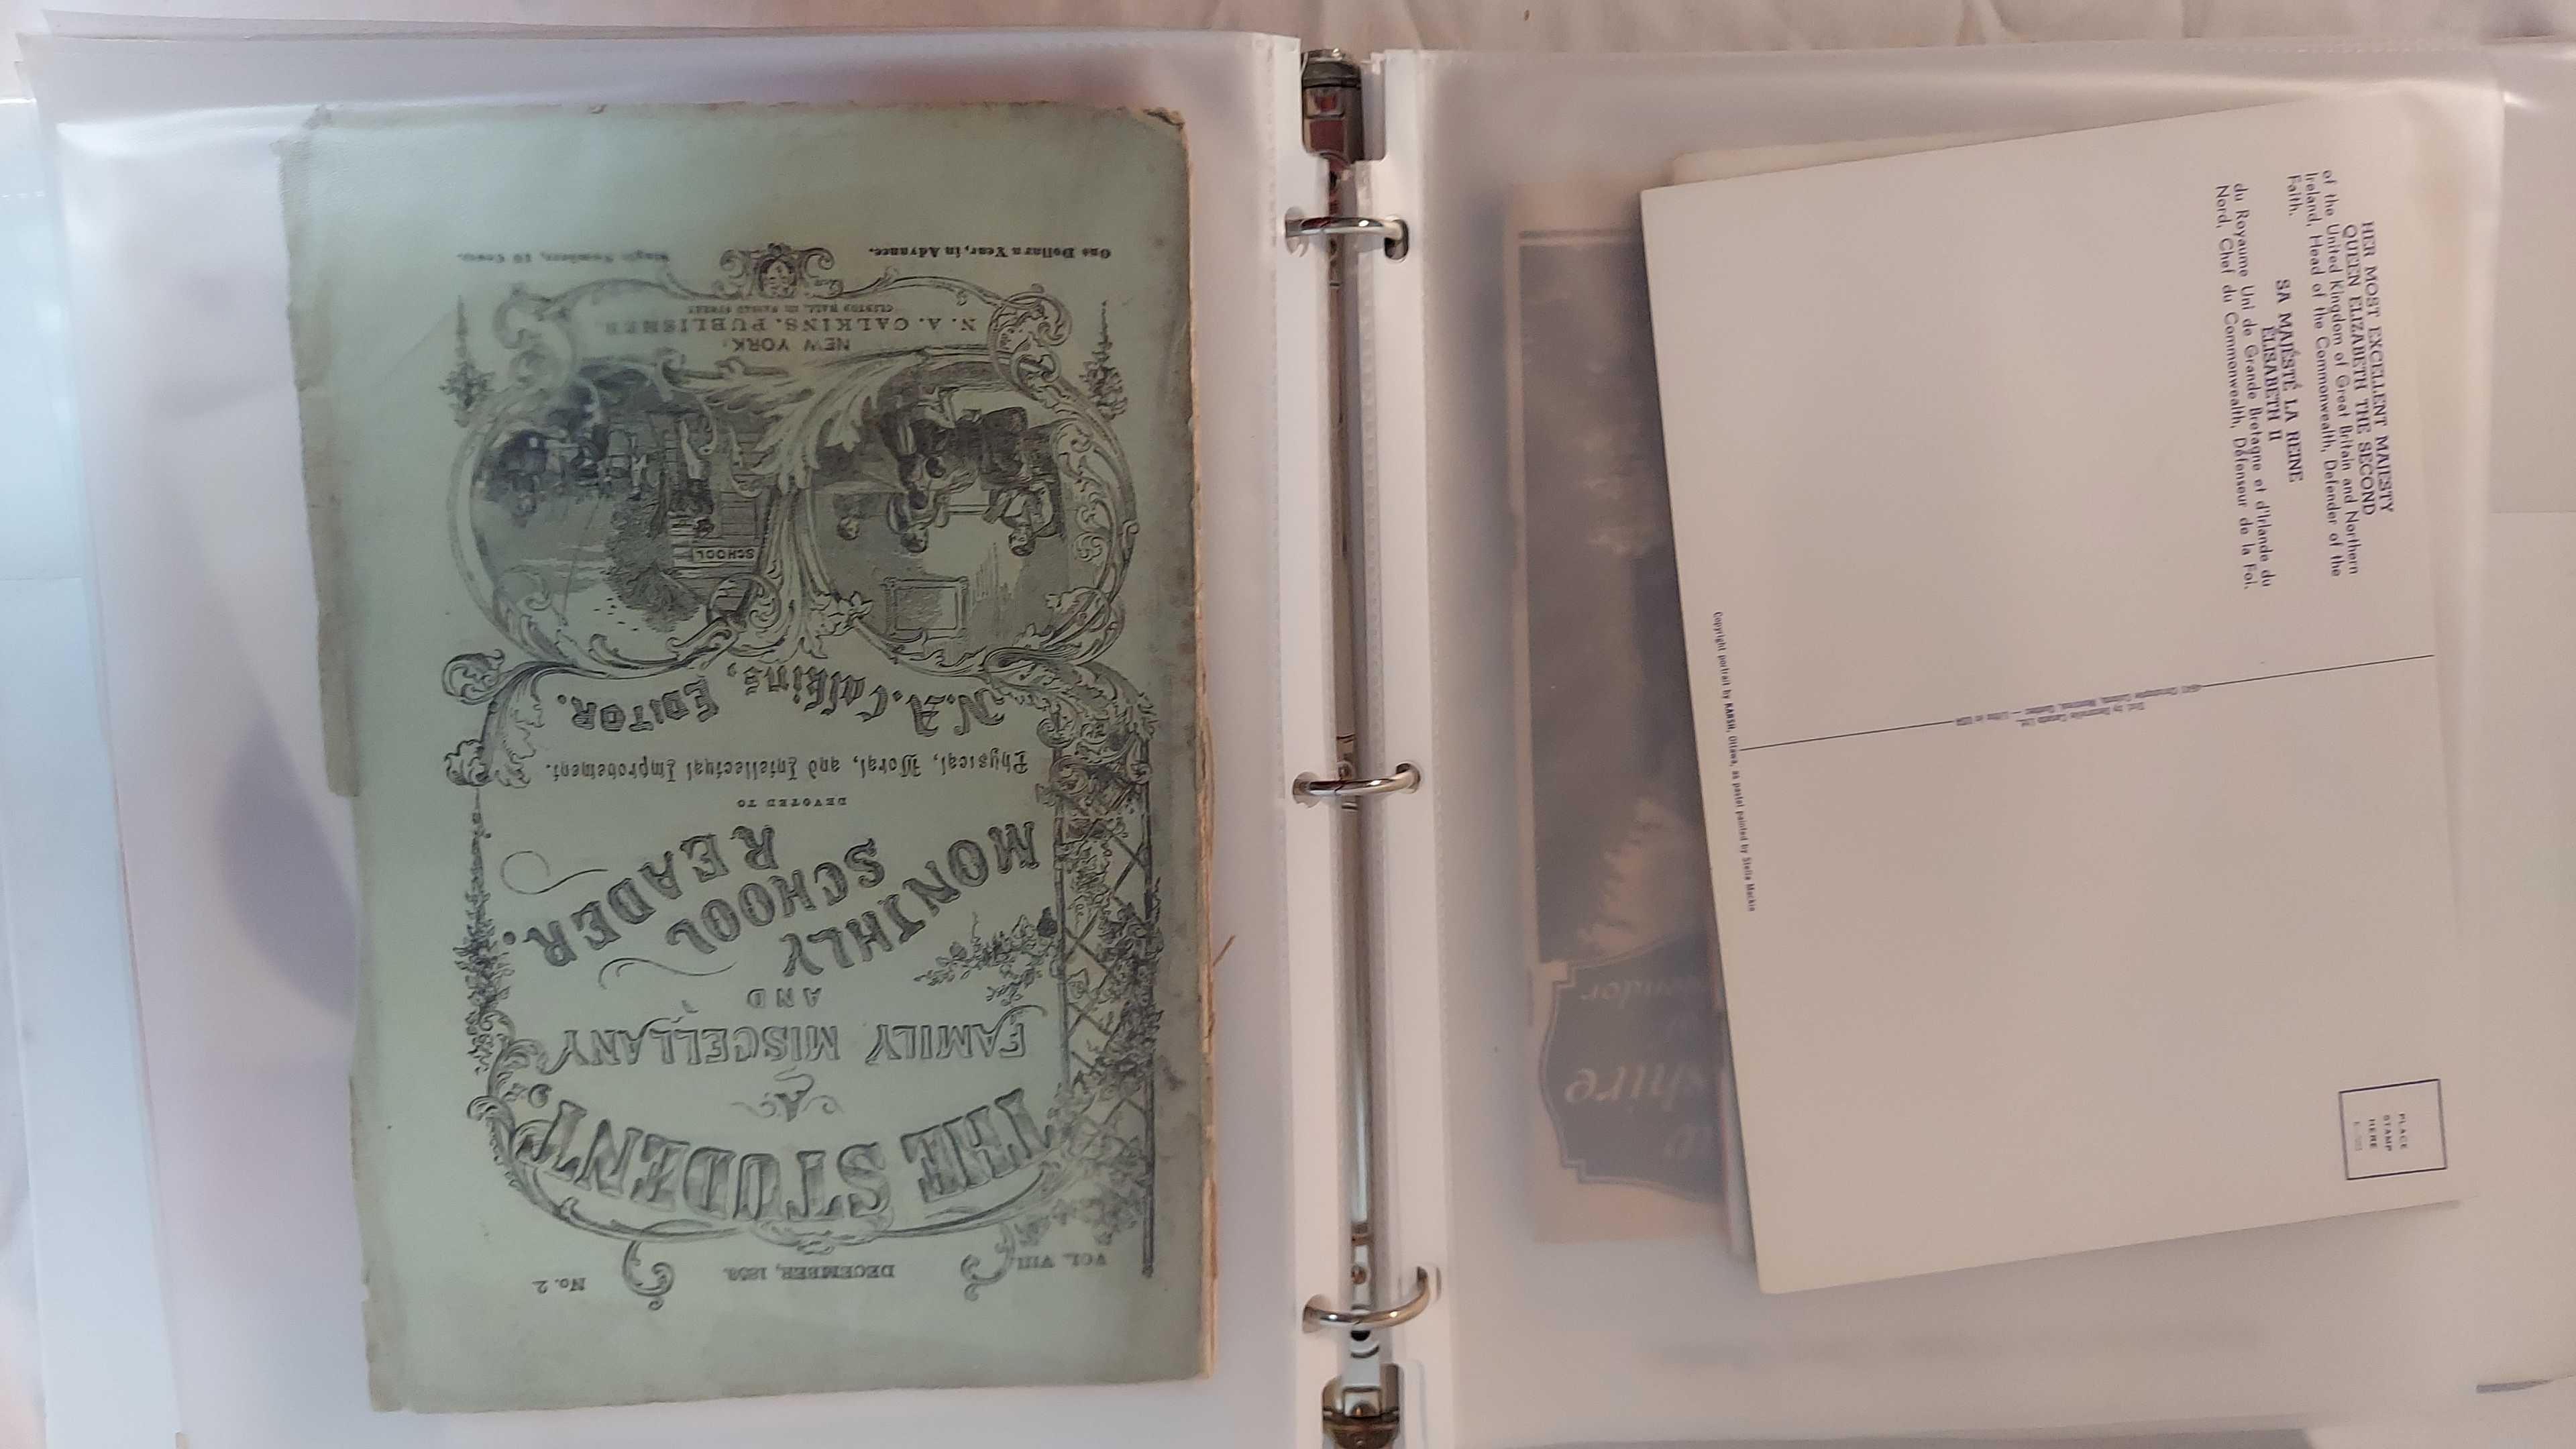 VOL. VIII. DECEMBER, 1853. No. 2
THE STUDENT.
A
FAMILY MISCELLANY
AND
MONTHLY
SCHOOL
READER.
READER
DEVOTED TO
Physical, Moral, and Intellectual Improvement.
N.A. Calkins, EDITOR.
SCHOOL
NEW YORK:
N. A. CALKINS, PUBLISHER,
CLINTON HALL, 131 NASSAU STREET
One Dollar a Year, in Advance. Single Numbers, 10 Cents.
HER MOST EXCELLENT MAJESTY
QUEEN ELIZABETH THE SECOND
of the United Kingdom of Great Britain and Northern
Ireland, Head of the Commonwealth, Defender of the
Faith.
SA MAJÉSTÉ LA REINE
ÉLISABETH II
du Royaume Uni de Grande Bretagne et d'Irlande du
Nord, Chef du Commonwealth, Défenseur de la Foi.
Copyright portrait by KARSH, Ottawa, as pastel painted by Stella Mackie
PLACE
STAMP
HERE
hire